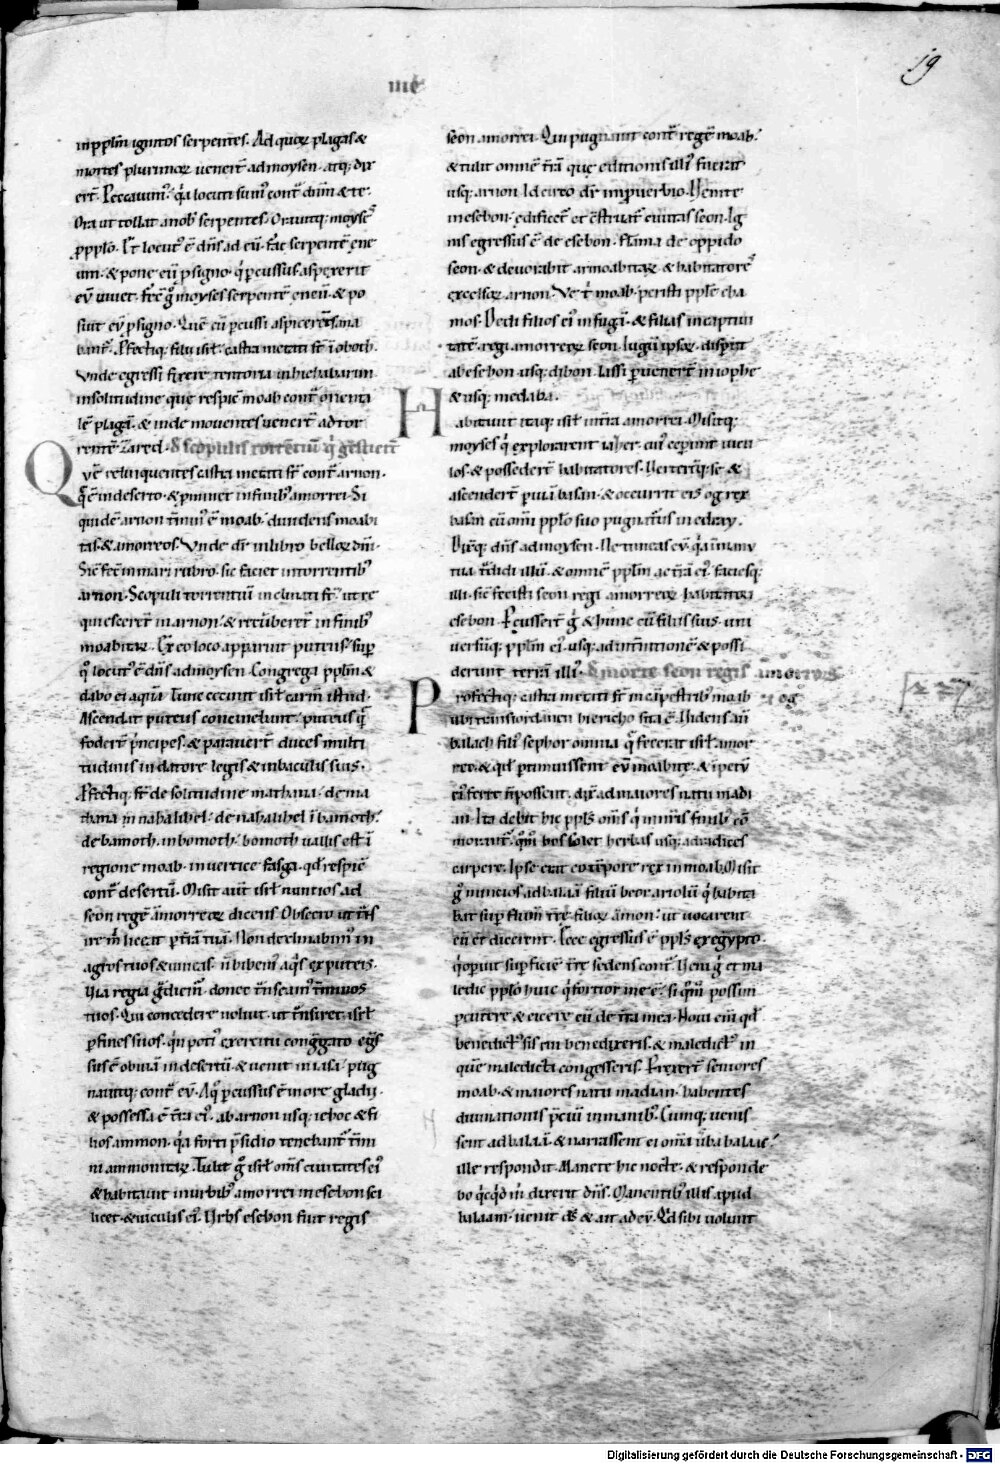 me
19
inp̄plm̄ ignitos serpentes. Ad quoꝝ plagas &
mortes plurimoꝝ uener̄t ad moysen. atq; dix
er̄t. Peccauim᷒. q̄a locuti sum᷒ cont̄ dn̄m & te.
Ora ut tollat a nob᷒ serpentes. Orauitq; moyses
p̄ pplo. Et locut᷒ ē dn̄s ad eū. fac serpentē ene
um. & pone eū p̄ signo. q̄ percussus aspexerit
eū uiuet. fec̄ g̊ moyses serpentē eneū. & po
suit eū p̄ signo. Quē cū percussi aspicerent sana
bant᷒. Profectiq; filii isrl̄ castra metati st̄ ī oboth.
Vnde egressi fixere tentoria in hiebarim
in solitudine que respic̄ moab cont̄ orienta
lē plagā. & inde mouentes uener̄t ad tor
rentē zared. de scopulis torrentiū q̄
Qvē relinquentes castra metati st̄ cont̄ arnon.
q̄ ē in deserto. & p̄minet in finib᷒ amorrei. Si
quidē arnon t̄min᷒ ē moab. diuidens moabi
tas. & amorreos. Vnde dr̄ in libro belloꝝ dn̄i.
Sic fec̄ in mari rubro. sic faciet in torrentib᷒
arnon. Scopuli torrentiū inclinati st̄. ut re
quiescerēt in arnon. & recūberent in finib᷒
moabitaꝝ. Ex eo loco apparuit puteus. sup̄
q̊ locut᷒ ē dn̄s ad moysen. Congrega pplm̄ &
dabo ei aquā. Tunc cecinit isrl̄ carm̄ istud.
Ascendat puteus concinebant. puteus quē
foder̄t p̄ncipes. & parauer̄t duces multi
tudinis in datore legis & in baculis suis.
Profectiq; st̄ de solitudine mathana. de ma
thana in nahalihel. de nahalihel ī bamoth.
de bamoth. in bomoth. bomoth uallis est ī
regione moab. in uertice fasga. qd̄ respic̄
cont̄ desertū. Misit aut̄ isrl̄ nuntios ad
seon regē amorreoꝝ dicens. Obsecro ut t̄ns
ire m̄ liceat p̄ t̄rā tuā. Non declinabim᷒ in
agros tuos & uineas. n̄ bibem᷒ aq̄s ex puteis.
Via regia g̊diem᷒. donec t̄nseam᷒ t̄minos
tuos. Qui concedere noluit. ut t̄nsiret isrl̄
p̄ fines suos. q̄n poti᷒ exercitu congregato egres
sus ē obuiā in desertū. & uenit in iasa. pug
nauitq; cont̄ eū. A quo percussus ē in ore gladii.
& possessa ē t̄ra ei᷒. ab arnon usq; ieboc & fi
lios ammon. q̄a forti p̄sidio tenebant᷒ t̄mi
ni ammonitaꝝ. Tulit g̊ isrl̄ om̄s ciuitates ei᷒
& habitauit in urbib᷒ amorrei in esebon sci
licet. & uiculis ei᷒. Vrbs esebon fuit regis
seon amorrei. Qui pugnauit cont̄ regē moab.
& tulit omnē t̄rā que editionis illi᷒ fuerat
usq; arnon. Idcirco dr̄ in prouerbio. Venite
in esebon. edificet᷒ et c̄struat᷒ ciuitas seon. Ig
nis egressus ē de esebon. flāma de oppido
seon. & deuorabit ar moabitaꝝ & habitatores
excelsoꝝ arnon. Ve t̄ moab. peristi pple cha
mos. Dedit filios ei᷒ in fugā. & filias in captiui
tatē. regi amorreoꝝ seon. Iugū ipsoꝝ. disperiit
ab esebon. usq; dibon. lassi peruener̄t in iophe
& usq; medaba.
Habitauit itaq; isrl̄ in t̄ra amorrei. Misitq;
moyses q̄ explorarent iazer. cui᷒ ceperunt uicu
los. & possederēt habitatores. Verterūtq; se &
ascenderēt p̄ uiā basan. & occurrit eis og rex
basan cū omī pplo suo pugnat᷒us in edray.
Dixq; dn̄s ad moysen. Ne timeas eū. q̄a in manu
tua t̄didi illū. & omnē pplm̄ ac t̄rā ei᷒. faciesq;
illi sic̄ fecisti seon regi amorreoꝝ habitatori
esebon. Percusser̄t g̊ & hunc cū filiis suis. uni
uersūq; pplm̄ ei᷒. usq; ad int̄nitionē. & possi
derunt terrā illi᷒. de morte seon regis amorreoꝝ
& og
Profectiq; castra metati st̄ in campestrib᷒ moab
ubi trans iordanen hiericho sita ē. Videns aūt
balach fili᷒ sephor omnia q̄ fecerat isrl̄ amor
reo. & qd̄ p̄timuissent eū moabite. & īpetū
ei᷒ ferre n̄ possent. dix̄ ad maiores natu madi
an. Ita delebit hic ppls om̄s q̄ in n̄ris finib᷒ cō
morant᷒. q̊m̊ bos solet herbas usq; ad radices
carpere. Ipse erat eo tēpore rex in moab. Misit
g̊ nuncios ad balaā filiū beor ariolū q̄ habita
bat sup̄ flum̄ t̄re filioꝝ amon. ut uocarent
eū et dicerent. Ecce egressus ē ppls ex egypto.
q̄ operuit superficiē t̄re sedens cont̄. Veni g̊ et ma
ledic pplo huic. q̄a fortior me ē. si q̊m̊ possim
percutere & eicere eū de t̄ra mea. Noui enī qd̄
benedict᷒ sit cui benedixeris. & maledict᷒ in
quē maledicta congesseris. Perrexer̄t seniores
moab. & maiores natu madian. habentes
diuinationis p̄ciū in manib᷒. Cumq; uenis
sent ad balaā. & narrassent ei om̄ia uerba balac.
ille respondit. Manete hic nocte. & responde
bo q̄cq̄d m̄ dixerit dn̄s. Manentib᷒ illis apud
balaam. uenit ds̄ & ait ad eū. Qd̄ sibi uolunt
Digitalisierung gefördert durch die Deutsche Forschungsgemeinschaft - DFG